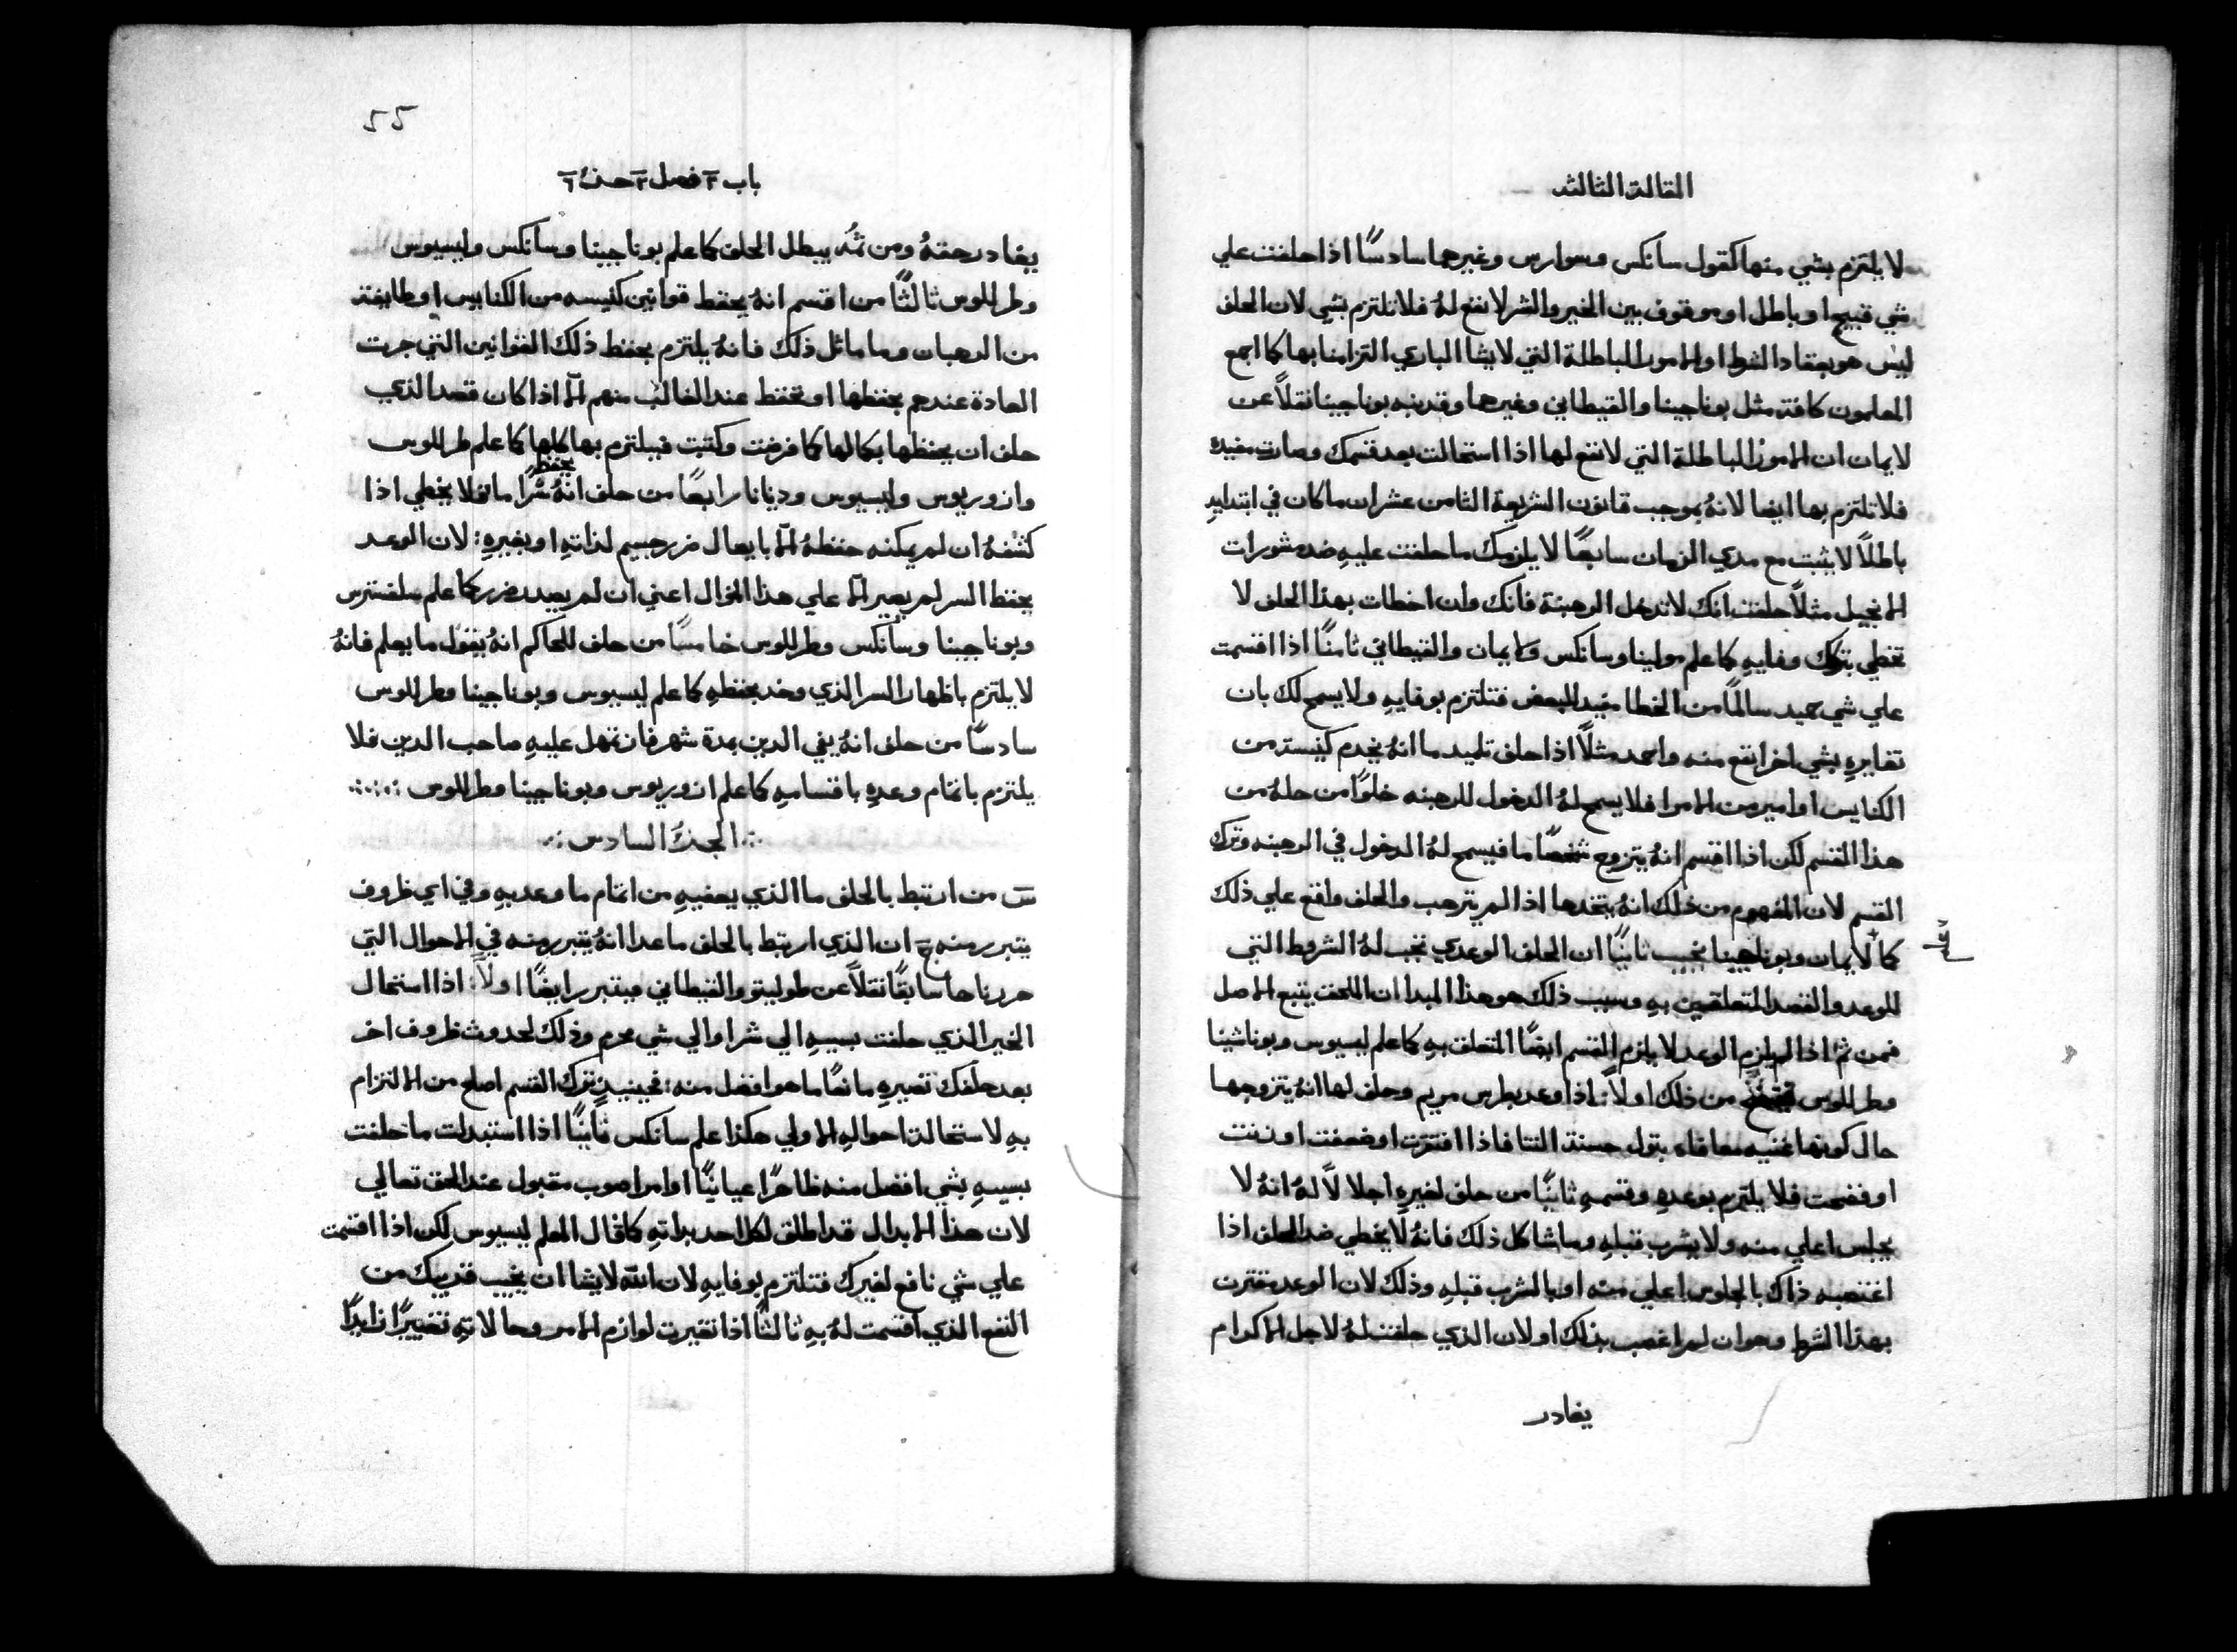 المقالة الثالثة
لا يلتزم بشي منها كقول سانكس وسوارس وغيرهما سادسًا اذا حلفت علي
شي قبيح او باطل او موقوف بين الخير والشر لا نفع لهُ فلا تلتزم بشي لان الحلف
ليس هو بعقاد الشر او الامور الباطلة التي لا يشا الباري التزامنا بها كما اجمع
المعلمون كافة مثل بوناجينا والقيطاني وغيرهما وقد نبه بوناجينا نقلاً عن
لايمان ان الامور الباطلة التي لا نفع لها اذا استحالت بعد قسمك وصارت مفيده
فلا تلتزم بها ايضا لانهُ بموجب قانون الشريعة الثامن عشر ان ما كان في ابتدايهِ
باطلاً لا يثبت مع مدي الزمان سابعًا لا يلزمك ما حلفت عليهِ ضد مشورات
الانجيل مثلاً حلفت انك لا تدخل الرهبنة فانك وان اخطات بهذا الحلف لا
تخطي بتركك وفايهِ كما علم مولينا وسانكس ولايمان والقيطاني ثامنًا اذا اقسمت
علي شي حميد سالمًا من الخطا مفيد للبعض فتلتزم بوفايهِ ولا يسمح لك بان
تغايرهِ بشي اخر انفع منه واحمد مثلاً اذا حلف تلميد ما انهُ يخدم كنيسة من
الكنايس او امير من الامرا فلا يسمح لهُ الدخول للرهبنه خلوًا من حلهُ من
هذا القسم لكن اذا اقسم انهُ يتزوج شخصًا ما فيسمح لهُ الدخول في الرهبنه وترك
القسم لان المفهوم من ذلك انهُ يتخدها اذا لم يترهب والحلف واقع علي ذلك
كما لايمان وبوناجينا نجيب ثانيًا ان الحلف الوعدي تجب لهُ الشروط التي
للوعد والقصد المتعلقين بهِ وسبب ذلك هو هذا المبدا ان الملحق يتبع الاصل
فمن ثم اذا لم يلزم الوعد لا يلزم القسم ايضًا المتعلق بهِ كما علم ليسيوس وبوناشينا
وطرللوس من ذلك اولاً: اذا وعد بطرس مريم وحلف لها انهُ يتزوجها
حال كونها غنيه معافاه بتول حسنة الثنا فاذا افتقرت او ضعفت او زنت
او فضحت فلا يلتزم بوعدهِ وقسمهِ ثانيًا من حلف لغيرهِ اجلالاً لهُ انهُ لا
يجلس اعلي منه ولا يشرب قبلهِ وما شاكل ذلك فانهُ لا يخطي ضد الحلف اذا
اغتصبه ذاك بالجلوس اعلي منه او بالشرب قبلهِ وذلك لان الوعد مقترن
بهذا الشرط وهو ان لم اغصب بذلك او لان الذي حلفت لهُ لاجل الاكرام
يغادر
55
باب ٢ فصل ٢ جز ٦
يغادر حقهُ ومن ثمُه يبطل الحلف كما علم بوناجينا وسانكس وليسيوس
وطرللوس ثالثًا من اقسم انهُ يحفظ قوانين كنيسه من الكنايس او طايفة
من الرهبان وما ماثل ذلك فانهُ يلتزم بحفظ ذلك القوانين التي جرت
العادة عندهم بحفظها او تحفظ عند الغالب منهم الا اذا كان قصد الذي
حلف ان يحفظها بكمالها كما فرضت وكتبت فيلتزم بها كلها كما علم طرللوس
وازوريوس وليسيوس وديانا رابعًا من حلف انهُ يحفظ سرًا ما فلا يخطي اذا
كشفهُ ان لم يمكنه حفظهُ الا بايصال ضرر جسيم لذاتهِ او بغيرهِ: لان الوعد
بحفظ السر لم يصير الا علي هذا المنوال اعني ان لم يصدر ضرر كما علم سلفسترس
وبوناجينا وسانكس وطرللوس خامسًا من حلف للحاكم انهُ يقول ما يعلم فانهُ
لا يلتزم باظهار السر الذي وعد بحفظهِ كما علم ليسيوس وبوناجينا وطرللوس
سادسًا من حلف انهُ يفي الدين بمدة شهر فان تمهل عليهِ صاحب الدين فلا
يلتزم باتمام وعدهِ باقسامهِ كما علم ازوريوس وبوناجينا وطرللوس
الجزءُ السادس
س من ارتبط بالحلف ما الذي يعفيهِ من اتمام ما وعد بهِ وفي اي ظروف
يتبرر منه ج ان الذي ارتبط بالحلف ما عدا انهُ يتبرر منه في الاحوال التي
حررناها سابقًا نقلاً عن طوليتو والقيطاني فيتبرر ايضًا اولاً: اذا استحال
الخير الذي حلفت بسببهِ الي شر او الي شي محرم وذلك لحدوث ظروف اخر
بعد حلفك تصيرهِ مانعًا ما هو افضل منه: فحينيذٍ ترك القسم اصلح من الالتزام
بهِ لاستحالة احوالهِ الاولي هكذا علم سانكس ثانيًا اذا استبدلت ما حلفت
بسببهِ بشي افضل منه ظاهرًا عيانيًا او امر اصوب مقبول عند الحق تعالي
لان هذا الابدال قد اطلق لكل احد بذاتهِ كما قال المعلم ليسيوس لكن اذا اقسمت
علي شي نافع لغيرك فتلتزم بوفايهِ لان الله لا يشا ان يخيب قريبك من
النفع الذي اقسمت لهُ بهِ ثالثًا اذا تغيرت لوازم الامر وحالاتهِ تغييرًا زايدًا